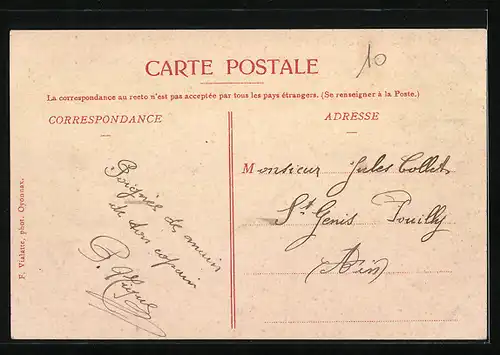 10
CARTE POSTALE
La correspondance au recto n'est pas acceptée par tous les pays étrangers. (Se renseigner à la Poste.)
CORRESPONDANCE
ADRESSE
Poignée de main
de ton copain
P.
Monsieur Jules Collet
St Genis Pouilly
Ain
F. Vialatte, phot. Oyonnax.